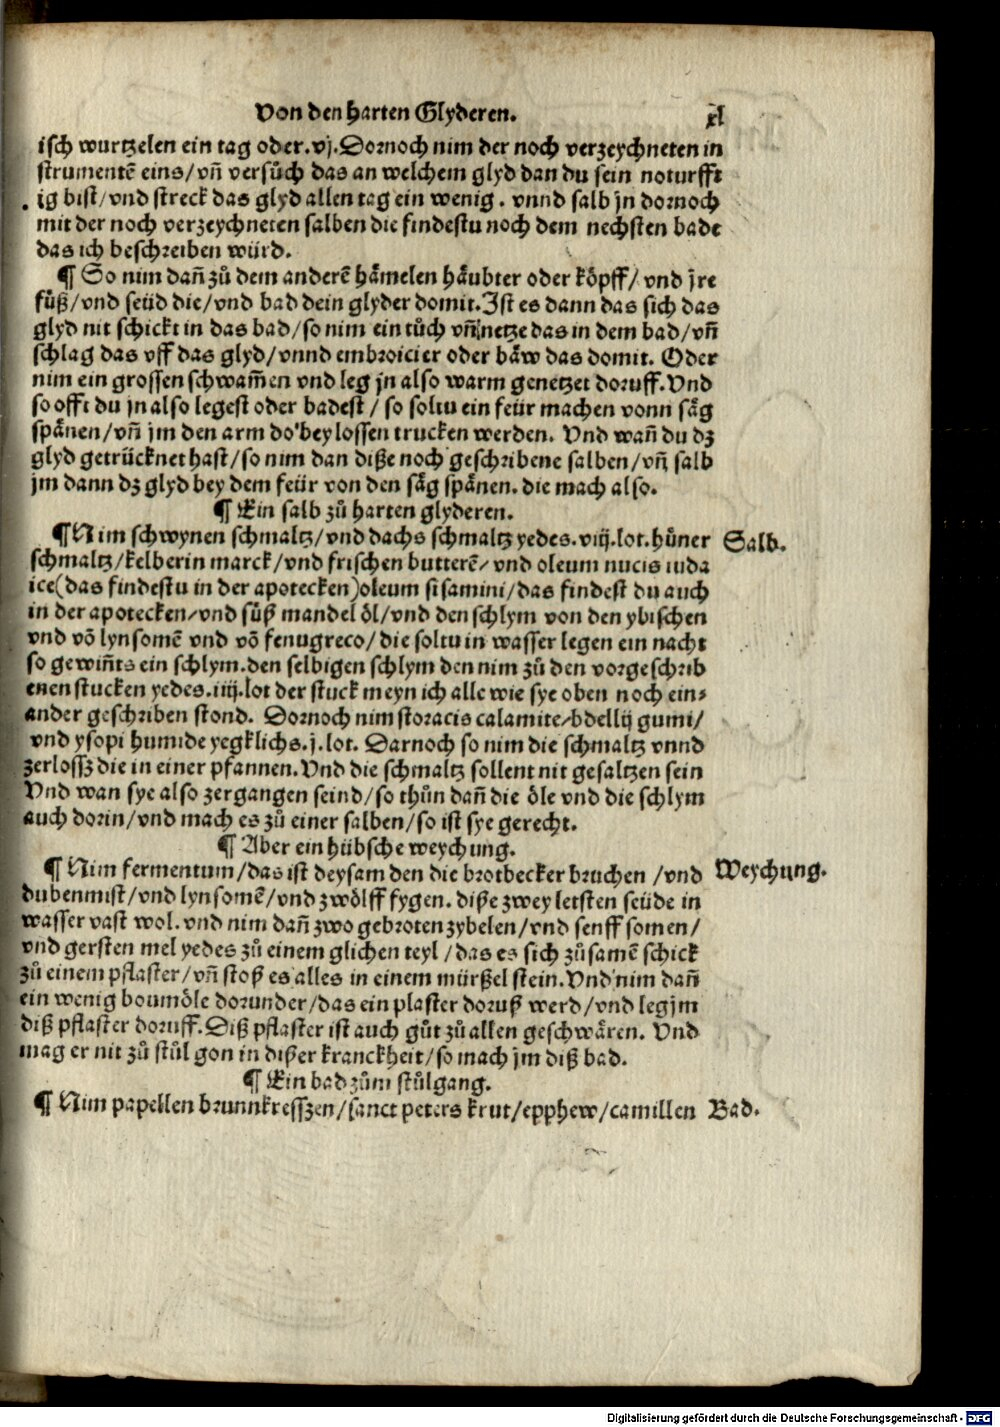 Von den harten Glyderen. xl
isch wurtzelen ein tag oder.vj. Dornoch nim der noch verzeychneten in
strumentē eins/vñ versůch das an welchem glyd dan du sein noturfft
ig bist/vnd streck das glyd allen tag ein wenig. vnnd salb jn dornoch
mit der noch verzeychneten salben die findestu noch dem nechsten bade
das ich beschreiben würd.
¶ So nim dañ zů dem anderē hämelen häubter oder köpff/ vnd jre
füß/vnd seüd die/vnd bad dein glyder domit. Ist es dann das sich das
glyd nit schickt in das bad/so nim ein tůch vñ netze das in dem bad/vñ
schlag das vff das glyd/vnnd embroicier oder bäw das domit. Oder
nim ein grossen schwam̄en vnd leg jn also warm genetzet doruff. Vnd
so offt du jn also legest oder badest/ so soltu ein feür machen vonn säg
spänen/vñ jm den arm do bey lossen trucken werden. Vnd wañ du dz
glyd getrücknet hast/so nim dan diße noch geschribene salben/vñ salb
jm dann dz glyd bey dem feür von den säg spänen. die mach also.
¶ Ein salb zů harten glyderen.
¶ Nim schwynen schmaltz/vnd dachs schmaltz yedes.viij.lot. hůner Salb.
schmaltz/kelberin marck/vnd frischen butterē/ vnd oleum nucis iuda
ice(das findestu in der apotecken)oleum sisamini/das findest du auch
in der apotecken/vnd süß mandel öl/vnd den schlym von den ybischen
vnd vō lynsomē vnd vō fenugreco/die soltu in wasser legen ein nacht
so gewiñts ein schlym.den selbigen schlym den nim zů den vorgeschrib
enen stucken yedes.iiij.lot der stuck meyn ich alle wie sye oben noch ein⸗
ander geschriben stond. Dornoch nim storacis calamite/bdellij gumi/
vnd ysopi humide yegklichs.j.lot. Darnoch so nim die schmaltz vnnd
zerlossz die in einer pfannen. Vnd die schmaltz sollent nit gesaltzen sein
Vnd wan sye also zergangen seind/so thůn dañ die öle vnd die schlym
auch dorin/vnd mach es zů einer salben/so ist sye gerecht.
¶ Aber ein hübsche weychung.
¶ Nim fermentum/das ist deysam den die brotbecker bruchen /vnd Weychung.
dubenmist/vnd lynsomē/vnd zwölff fygen. diße zwey letsten seüde in
wasser vast wol. vnd nim dañ zwo gebroten zybelen/vnd senff somen/
vnd gersten mel yedes zů einem glichen teyl /das es sich zůsamē schick
zů einem pflaster/vñ stoß es alles in einem mürßel stein. Vnd nim dañ
ein wenig boumöle dorunder/das ein plaster doruß werd/vnd leg jm
diß pflaster doruff. Diß pflaster ist auch gůt zů allen geschwären. Vnd
mag er nit zů stůl gon in dißer kranckheit/so mach jm diß bad.
¶ Ein bad zům stůlgang.
¶ Nim papellen brunnkresszen/sanct peters krut/epphew/camillen Bad.
Digitalisierung gefördert durch die Deutsche Forschungsgemeinschaft - DFG